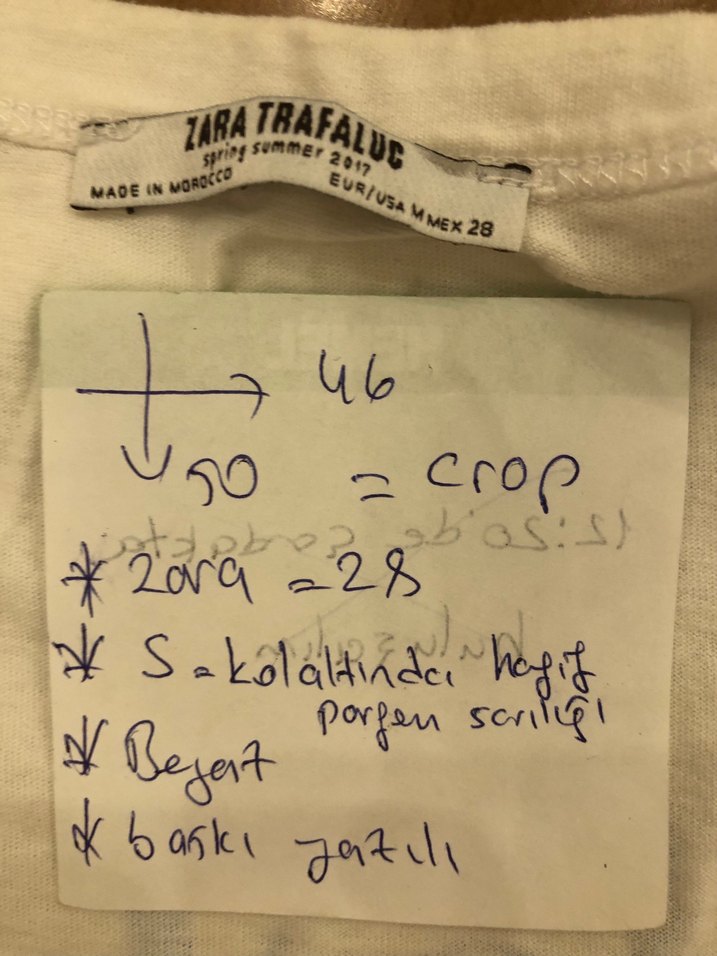 ZARA TRAFALUC
spring summer 2017
MADE IN MOROCCO
EUR/USA M MEX 28
46
50 = crop
* Zara = 28
* S = kolaltında hafif
parfen sarılığı
* Beyaz
* baskı yazılı
12:20'de
buluşalım